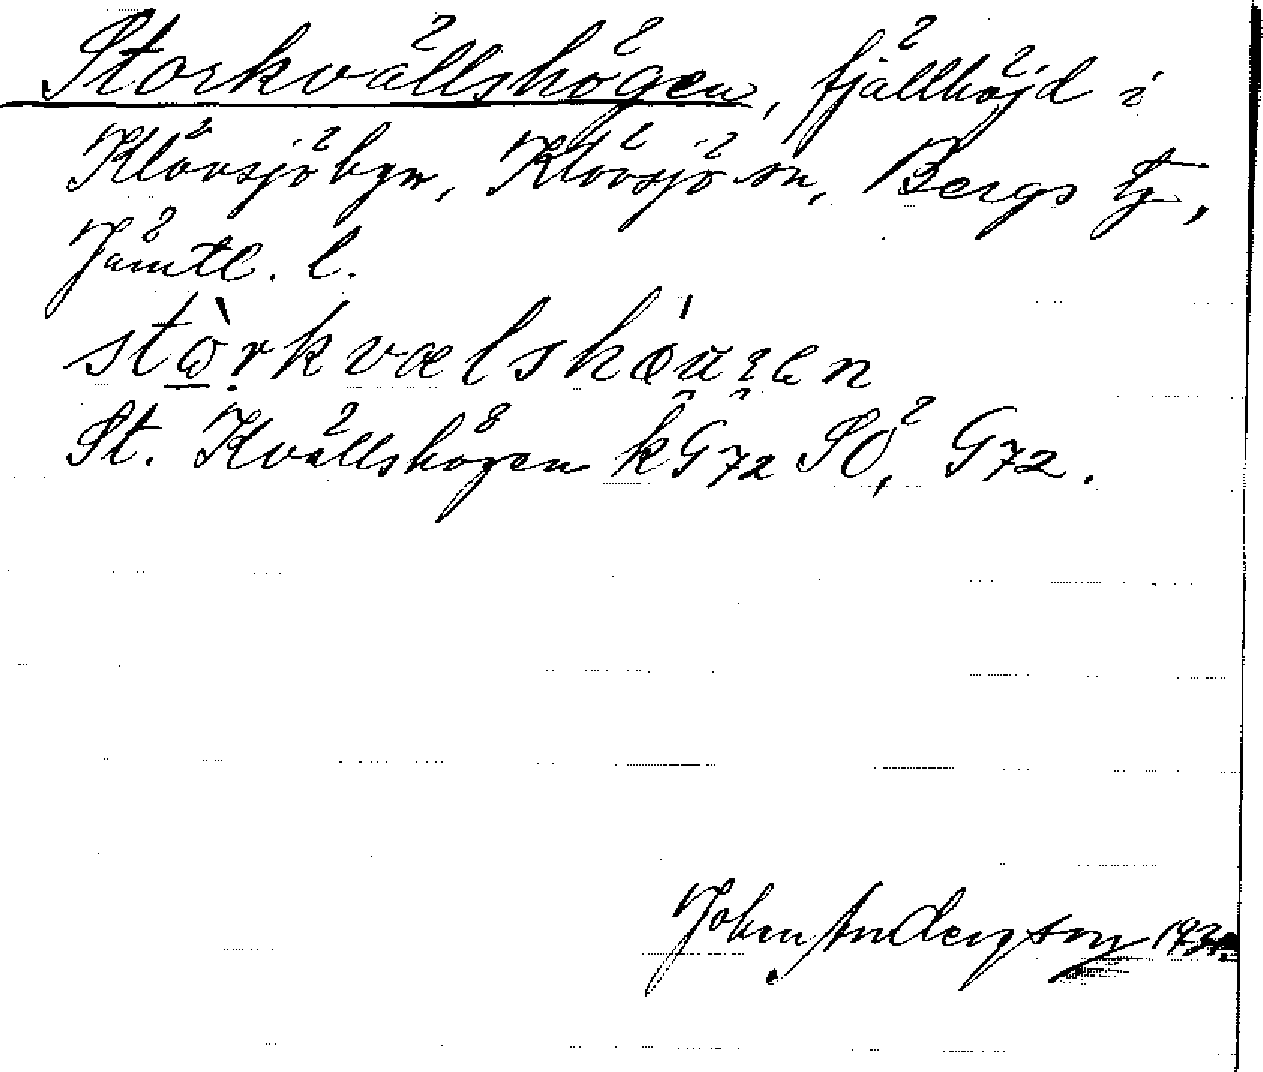 Storkvällshögen, fjällhöjd i
Klövsjö byn, Klövsjö sn, Bergs tg,
Jämtl. l.
St. Kvällshögen k G72 SÖ, G72.
John Andersson